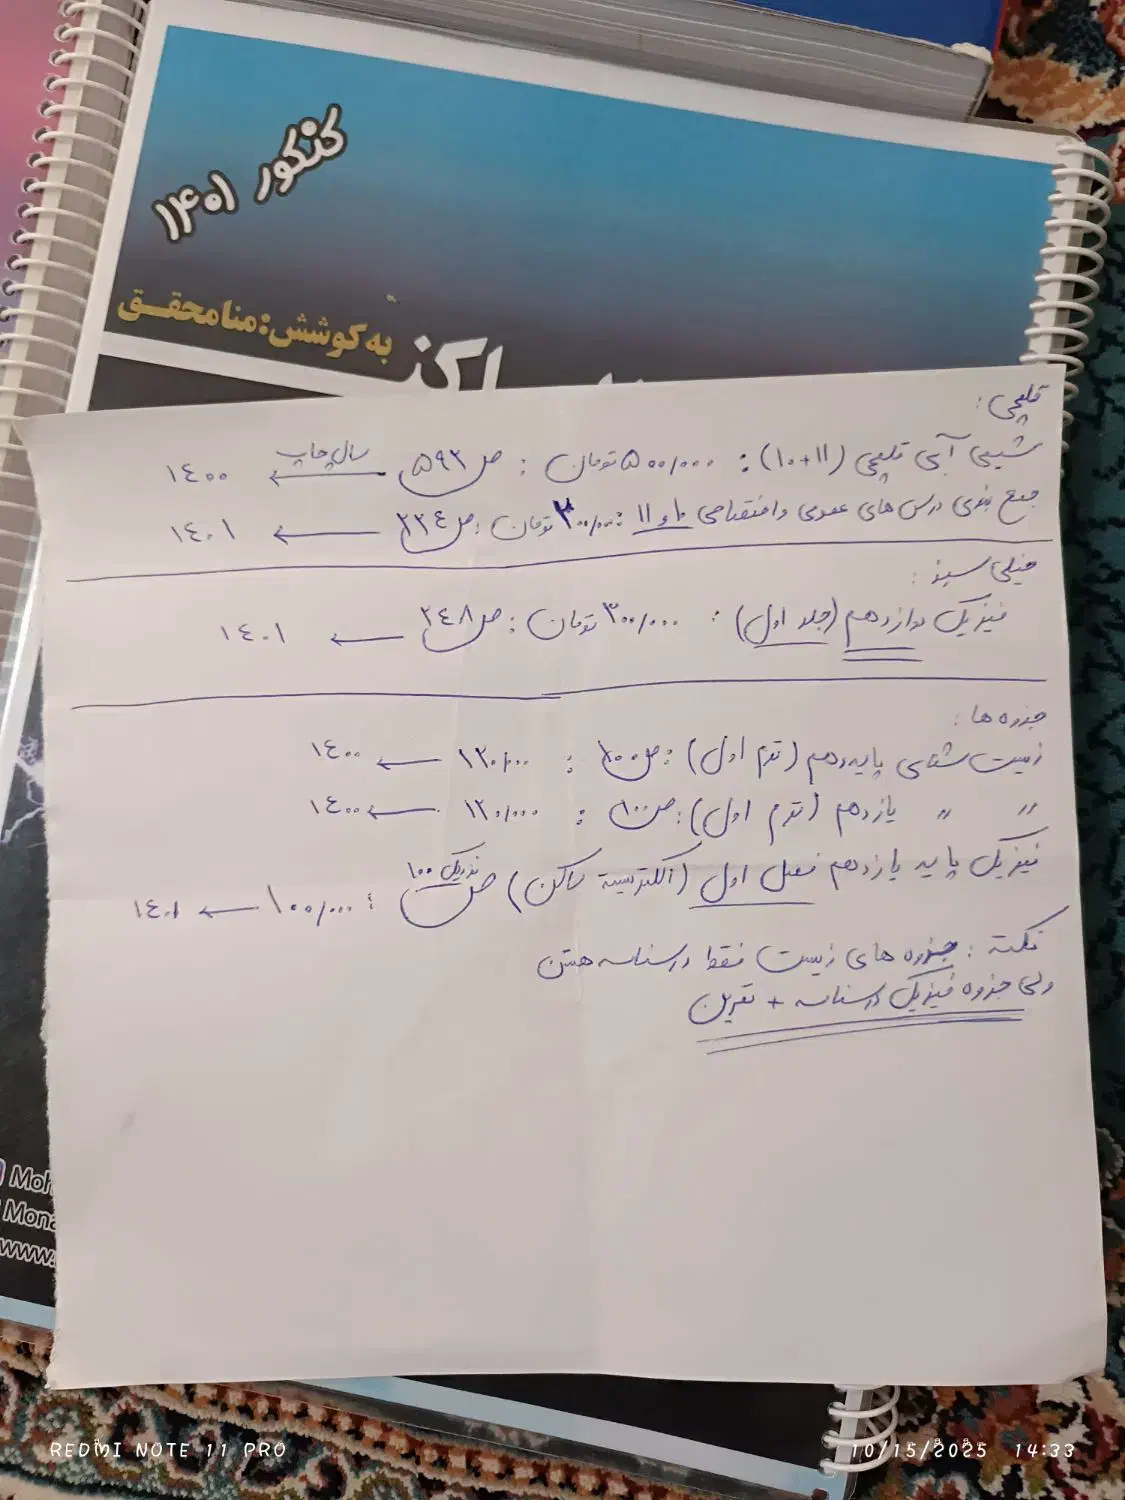 کنکور ۱۴۰۱
به کوشش: منا محقق
قلمچی:
شیمی آبی قلمچی (۱۰+۱۱): ۵۰۰/۰۰۰ تومان: ص ۵۹۲ سال چاپ ← ۱۴۰۰
جمع بندی درس های عمومی و اختصاصی ۱۰ و ۱۱: ۳۰۰/۰۰۰ تومان: ص ۲۲۴ ← ۱۴۰۱
خیلی سبز:
فیزیک دوازدهم (جلد اول): ۳۰۰/۰۰۰ تومان: ص ۲۴۸ ← ۱۴۰۱
جزوه ها:
زیست شناسی پایه دهم (ترم اول): ص ۱۰۰: ۱۲۰/۰۰۰ ← ۱۴۰۰
" " یازدهم (ترم اول): ص ۱۰۰: ۱۲۰/۰۰۰ ← ۱۴۰۰
فیزیک پایه یازدهم فصل اول (الکتریسیته ساکن) ص نزدیک ۱۰۰: ۱۰۰/۰۰۰ ← ۱۴۰۱
نکته: جزوه های زیست فقط درسنامه هستن
ولی جزوه فیزیک درسنامه + تمرین
Moh
Mona
www.
REDMI NOTE 11 PRO
10/15/2025 14:33